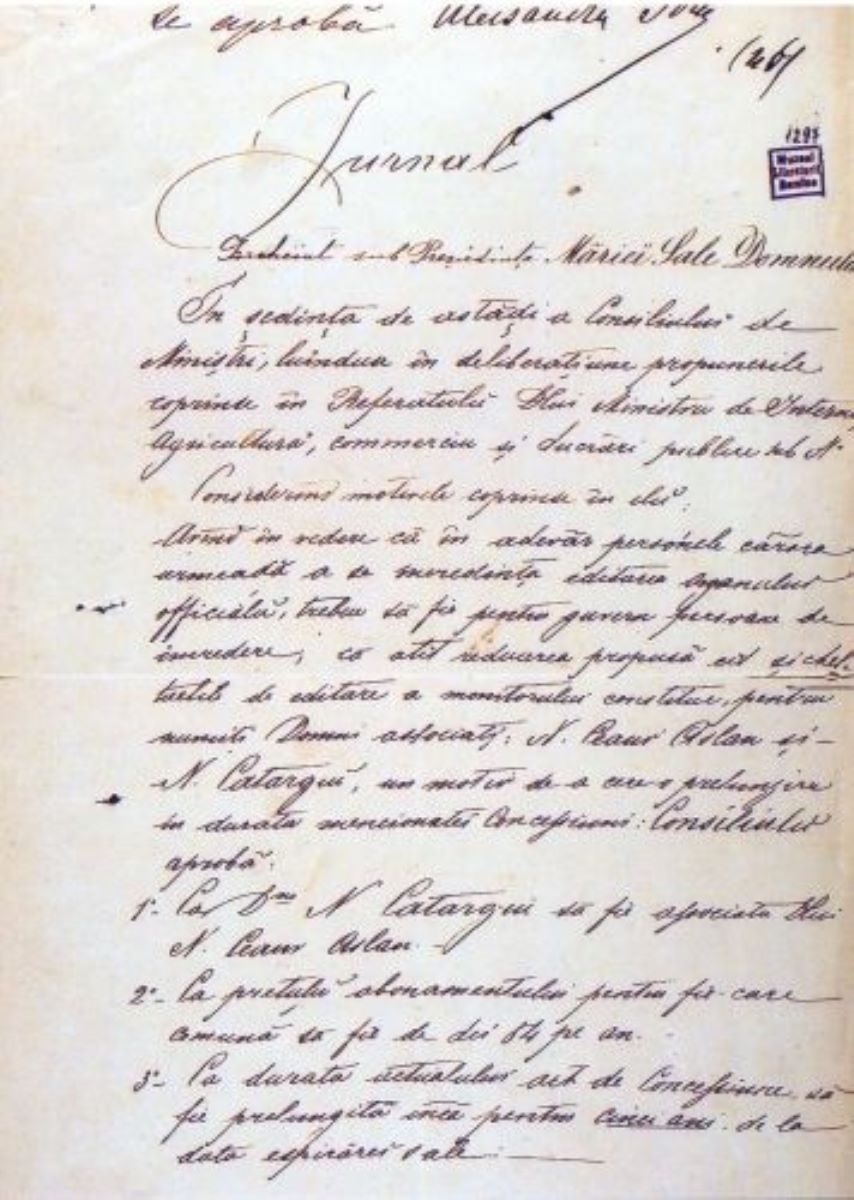 se aprobă Alecsandru Ioan
(126)
Jurnal
1297
Muzeul
Literaturii
Române
Încheiat sub Preșidința Măriei Sale Domnului
În ședința de astăḑi a Consiliului de
Miniștri, luîndua în deliberațiune propunerile
coprinse în Referatulŭ Dlui Ministru de Interne
Agricultură, commerciu și Lucrări publice sub No
Considerînd motivele coprinse în elŭ;
Avînd în vedere că în adevăr persónele cărora
urmeadă a se încredința editarea organului
officialŭ, trebue să fie pentru guvern persoane de
încredere, că atît reducerea propusă cît și chel-
tuelile de editare a monitorului constitue, pentru
numiți Domni associați: N. Ceaur Aslan și
N. Catargiu, un motiv de a cere o prelungire
în durata mencionatei Concessiuni: Consiliulŭ
aprobă:
1o- Ca Dnu N Catargiu să fie asociatu Dlui
N. Ceaur Aslan.
2o- Ca prețulŭ abonamentului pentru fie-care
comună să fie de lei 84 pe an.
3o- Ca durata actualului act de Concessiune să
fie prelungită încă pentru cinci ani de la
data espirărei sale.